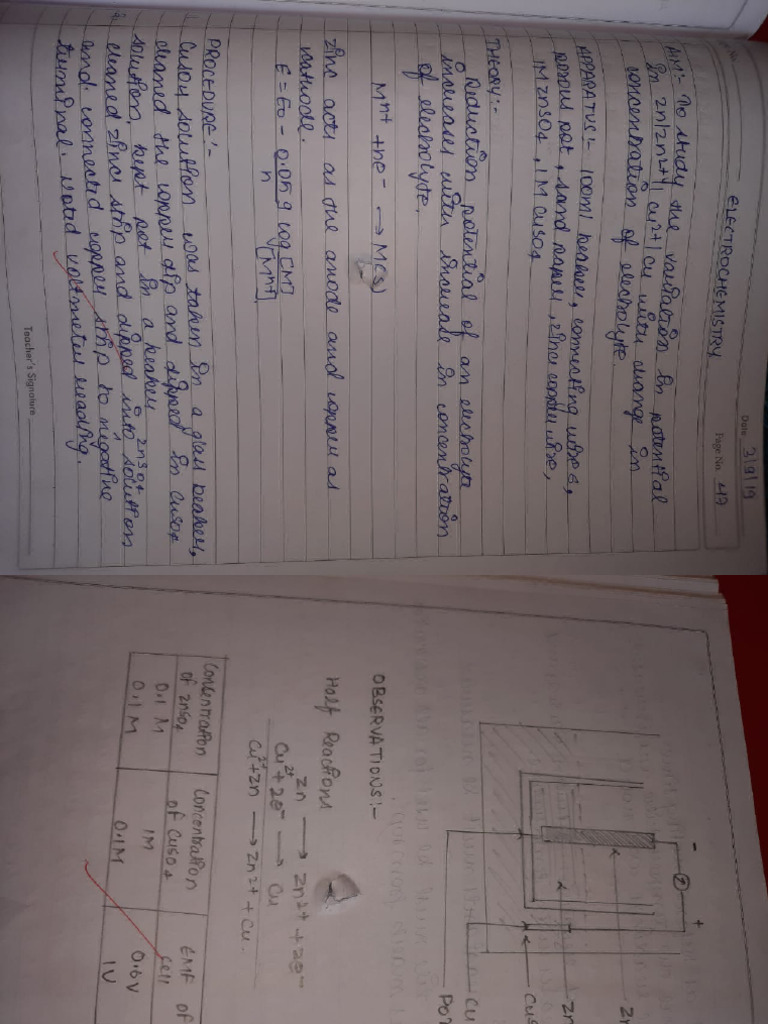 Date 3/9/19
Page No. 47
ELECTROCHEMISTRY
AIM:- To study the variation in potential
in zn/zn2+//cu2+/cu with change in
concentration of electrolyte.
APPARATUS:- 100ml beaker, connecting wires,
porous pot, sand paper, zinc wire,
1M znso4, 1M cuso4
THEORY:-
Reduction potential of an electrolyte
increases with increase in concentration
of electrolyte.
Mn+ + ne- → M(s)
zinc acts as the anode and copper as
cathode.
E = E0 - 0.059 log [M]
n [Mn+]
PROCEDURE:-
Cuso4 solution was taken in a glass beaker,
cleaned the copper strip and dipped in cuso4
solution. kept pot in a beaker
cleaned zinc strip and dipped into znso4 solution
and connected copper strip to negative
terminal. Noted voltmeter reading.
Teacher's Signature
- +
Zn
Zn
Cus
Cu
Por
OBSERVATIONS:-
Half Reactions
Zn → Zn2+ + 2e-
Cu2+ + 2e- → Cu
Cu2+ + Zn → Zn2+ + Cu.
Concentration of znso4 Concentration of Cuso4 EMF of cell
0.1 M 1M 0.6V
0.1 M 0.1M 1V